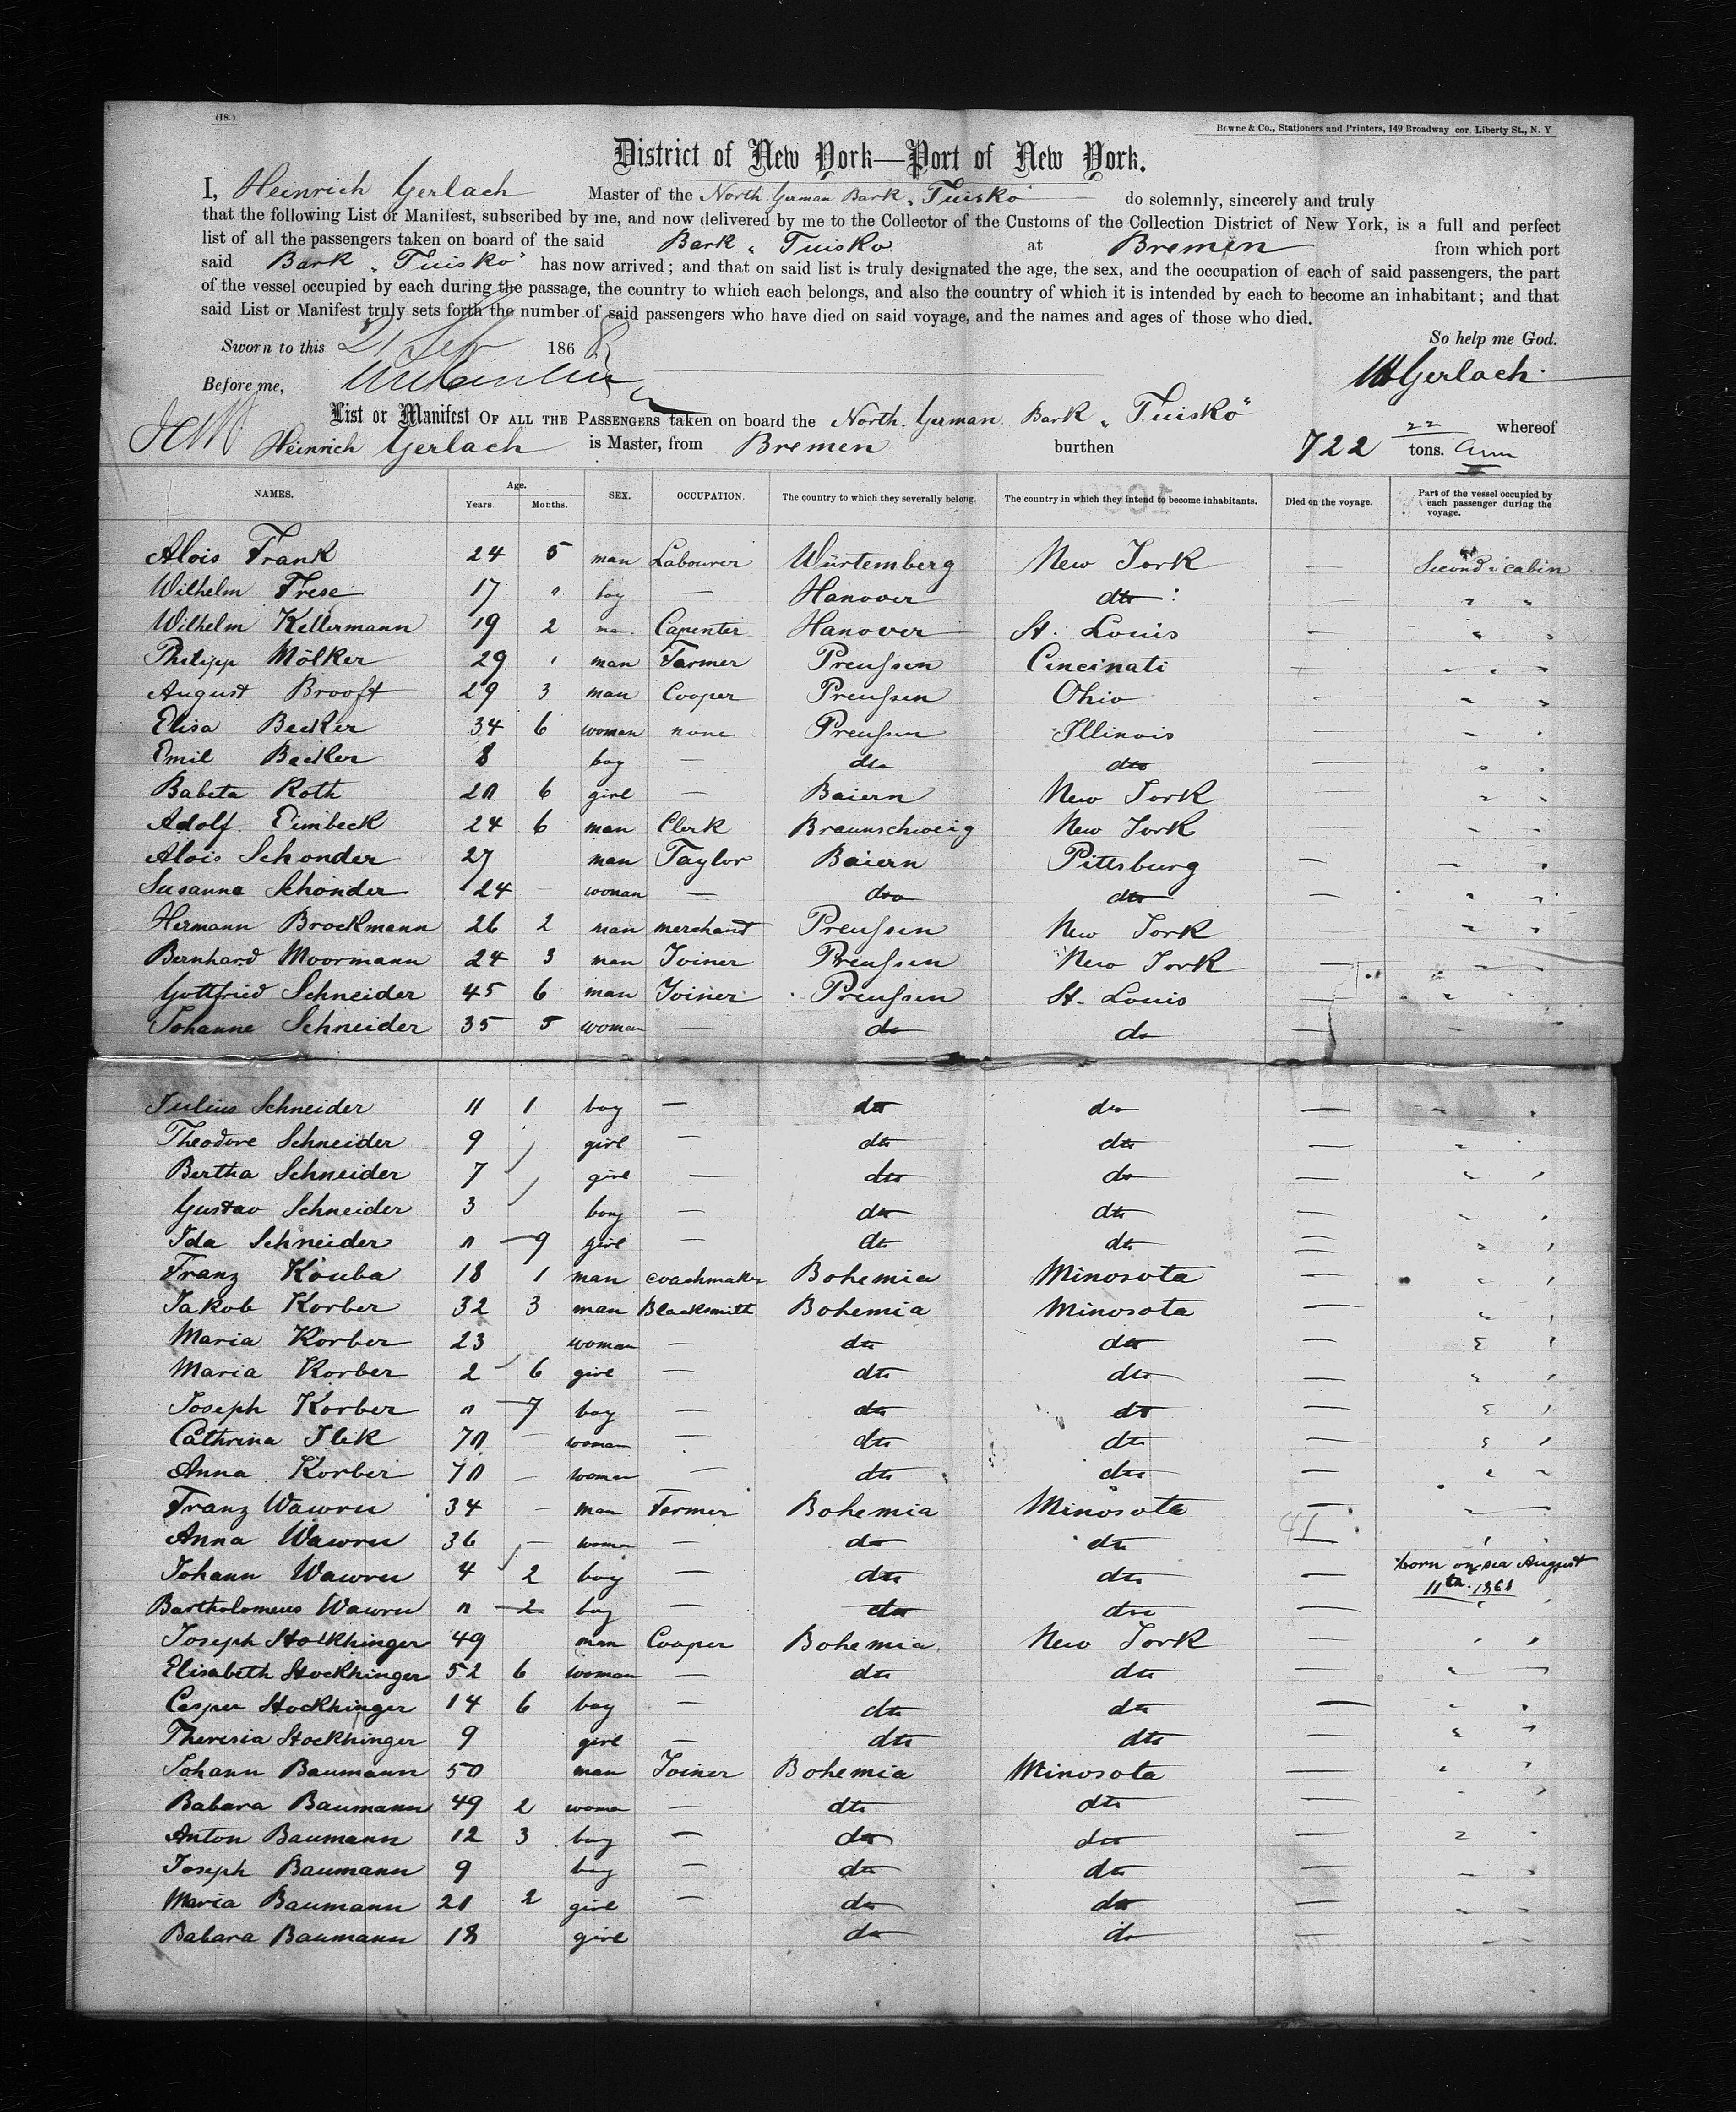 (18.)
Bowne & Co., Stationers and Printers, 149 Broadway cor. Liberty St., N. Y
District of New York—Port of New York.
I, Heinrich Gerlach Master of the North German Bark „Tuisko" do solemnly, sincerely and truly
that the following List or Manifest, subscribed by me, and now delivered by me to the Collector of the Customs of the Collection District of New York, is a full and perfect
list of all the passengers taken on board of the said Bark „Tuisko at Bremen from which port
said Bark „Tuisko" has now arrived; and that on said list is truly designated the age, the sex, and the occupation of each of said passengers, the part
of the vessel occupied by each during the passage, the country to which each belongs, and also the country of which it is intended by each to become an inhabitant; and that
said List or Manifest truly sets forth the number of said passengers who have died on said voyage, and the names and ages of those who died.
Sworn to this 21 Sep 1868 So help me God.
Before me, HGerlach
List or Manifest OF ALL THE PASSENGERS taken on board the North. German Bark „Tuisko"
Heinrich Gerlach is Master, from Bremen burthen 722 22 tons. whereof
NAMES. Age. Years Months. SEX. OCCUPATION. The country to which they severally belong. The country in which they intend to become inhabitants. Died on the voyage. Part of the vessel occupied by each passenger during the voyage.
Alois Frank 24 5 man Labourer Würtemberg New York — Second cabin
Wilhelm Frese 17 " boy — Hanover dto — " "
Wilhelm Kellermann 19 2 man Capenter Hanover St. Louis — " "
Philipp Mölker 29 ' man Farmer Preußen Cincinati — " "
August Brooft 29 3 man Cooper Preußen Ohio — " "
Elisa Becker 34 6 woman none Preußen Illinois — " "
Emil Becker 8 boy — dto dto — " "
Babeta Roth 20 6 girl — Baiern New York — " "
Adolf Eimbeck 24 6 man Clerk Braunschweig New York — " "
Alois Schonder 27 man Taylor Baiern Pittsburg — " "
Susanna Schonder 24 — woman — dto dto — " "
Hermann Brockmann 26 2 man merchand Preußen New York " "
Bernhard Moormann 24 3 man Joiner Preußen New York — " "
Gottfried Schneider 45 6 man Joiner Preußen St. Louis — " "
Johanne Schneider 35 5 woman — do do — " "
Julius Schneider 11 1 boy — dto do — " "
Theodore Schneider 9 girl — dto dto — "
Bertha Schneider 7 girl — dto do — " "
Gustav Schneider 3 boy — dto dto — " "
Ida Schneider " 9 girl — dto dto — " "
Franz Kouba 18 1 man coachmaker Bohemia Minosota — " "
Jakob Korber 32 3 man Blacksmith Bohemia Minosota — " "
Maria Korber 23 woman — dto dto — " "
Maria Korber 2 6 girl — dto dto — " "
Joseph Korber " 7 boy — dto dto — " "
Cathrina Ilik 70 — woman — dto dto — " "
Anna Korber 70 — woman — dto dto — " "
Franz Wawru 34 — man Farmer Bohemia Minosota — "
Anna Wawru 36 — woman — do dto 41 —
Johann Wawru 4 2 boy — dto dto — born on sea August
11th. 1868
Bartholomeus Wawru " 2 boy — dto dto — " "
Joseph Stockhinger 49 man Cooper Bohemia New York — " "
Elisabeth Stockhinger 52 6 woman — dto dto — "
Casper Stockhinger 14 6 boy — dto dto — " "
Theresia Stockhinger 9 girl — dto dto " "
Johann Baumann 50 man Joiner Bohemia Minosota — " "
Babara Baumann 49 2 woman — dto dto — " "
Anton Baumann 12 3 boy — do dto — " "
Joseph Baumann 9 boy — dto dto — " "
Maria Baumann 21 2 girl — do dto — " "
Babara Baumann 18 girl do do — "